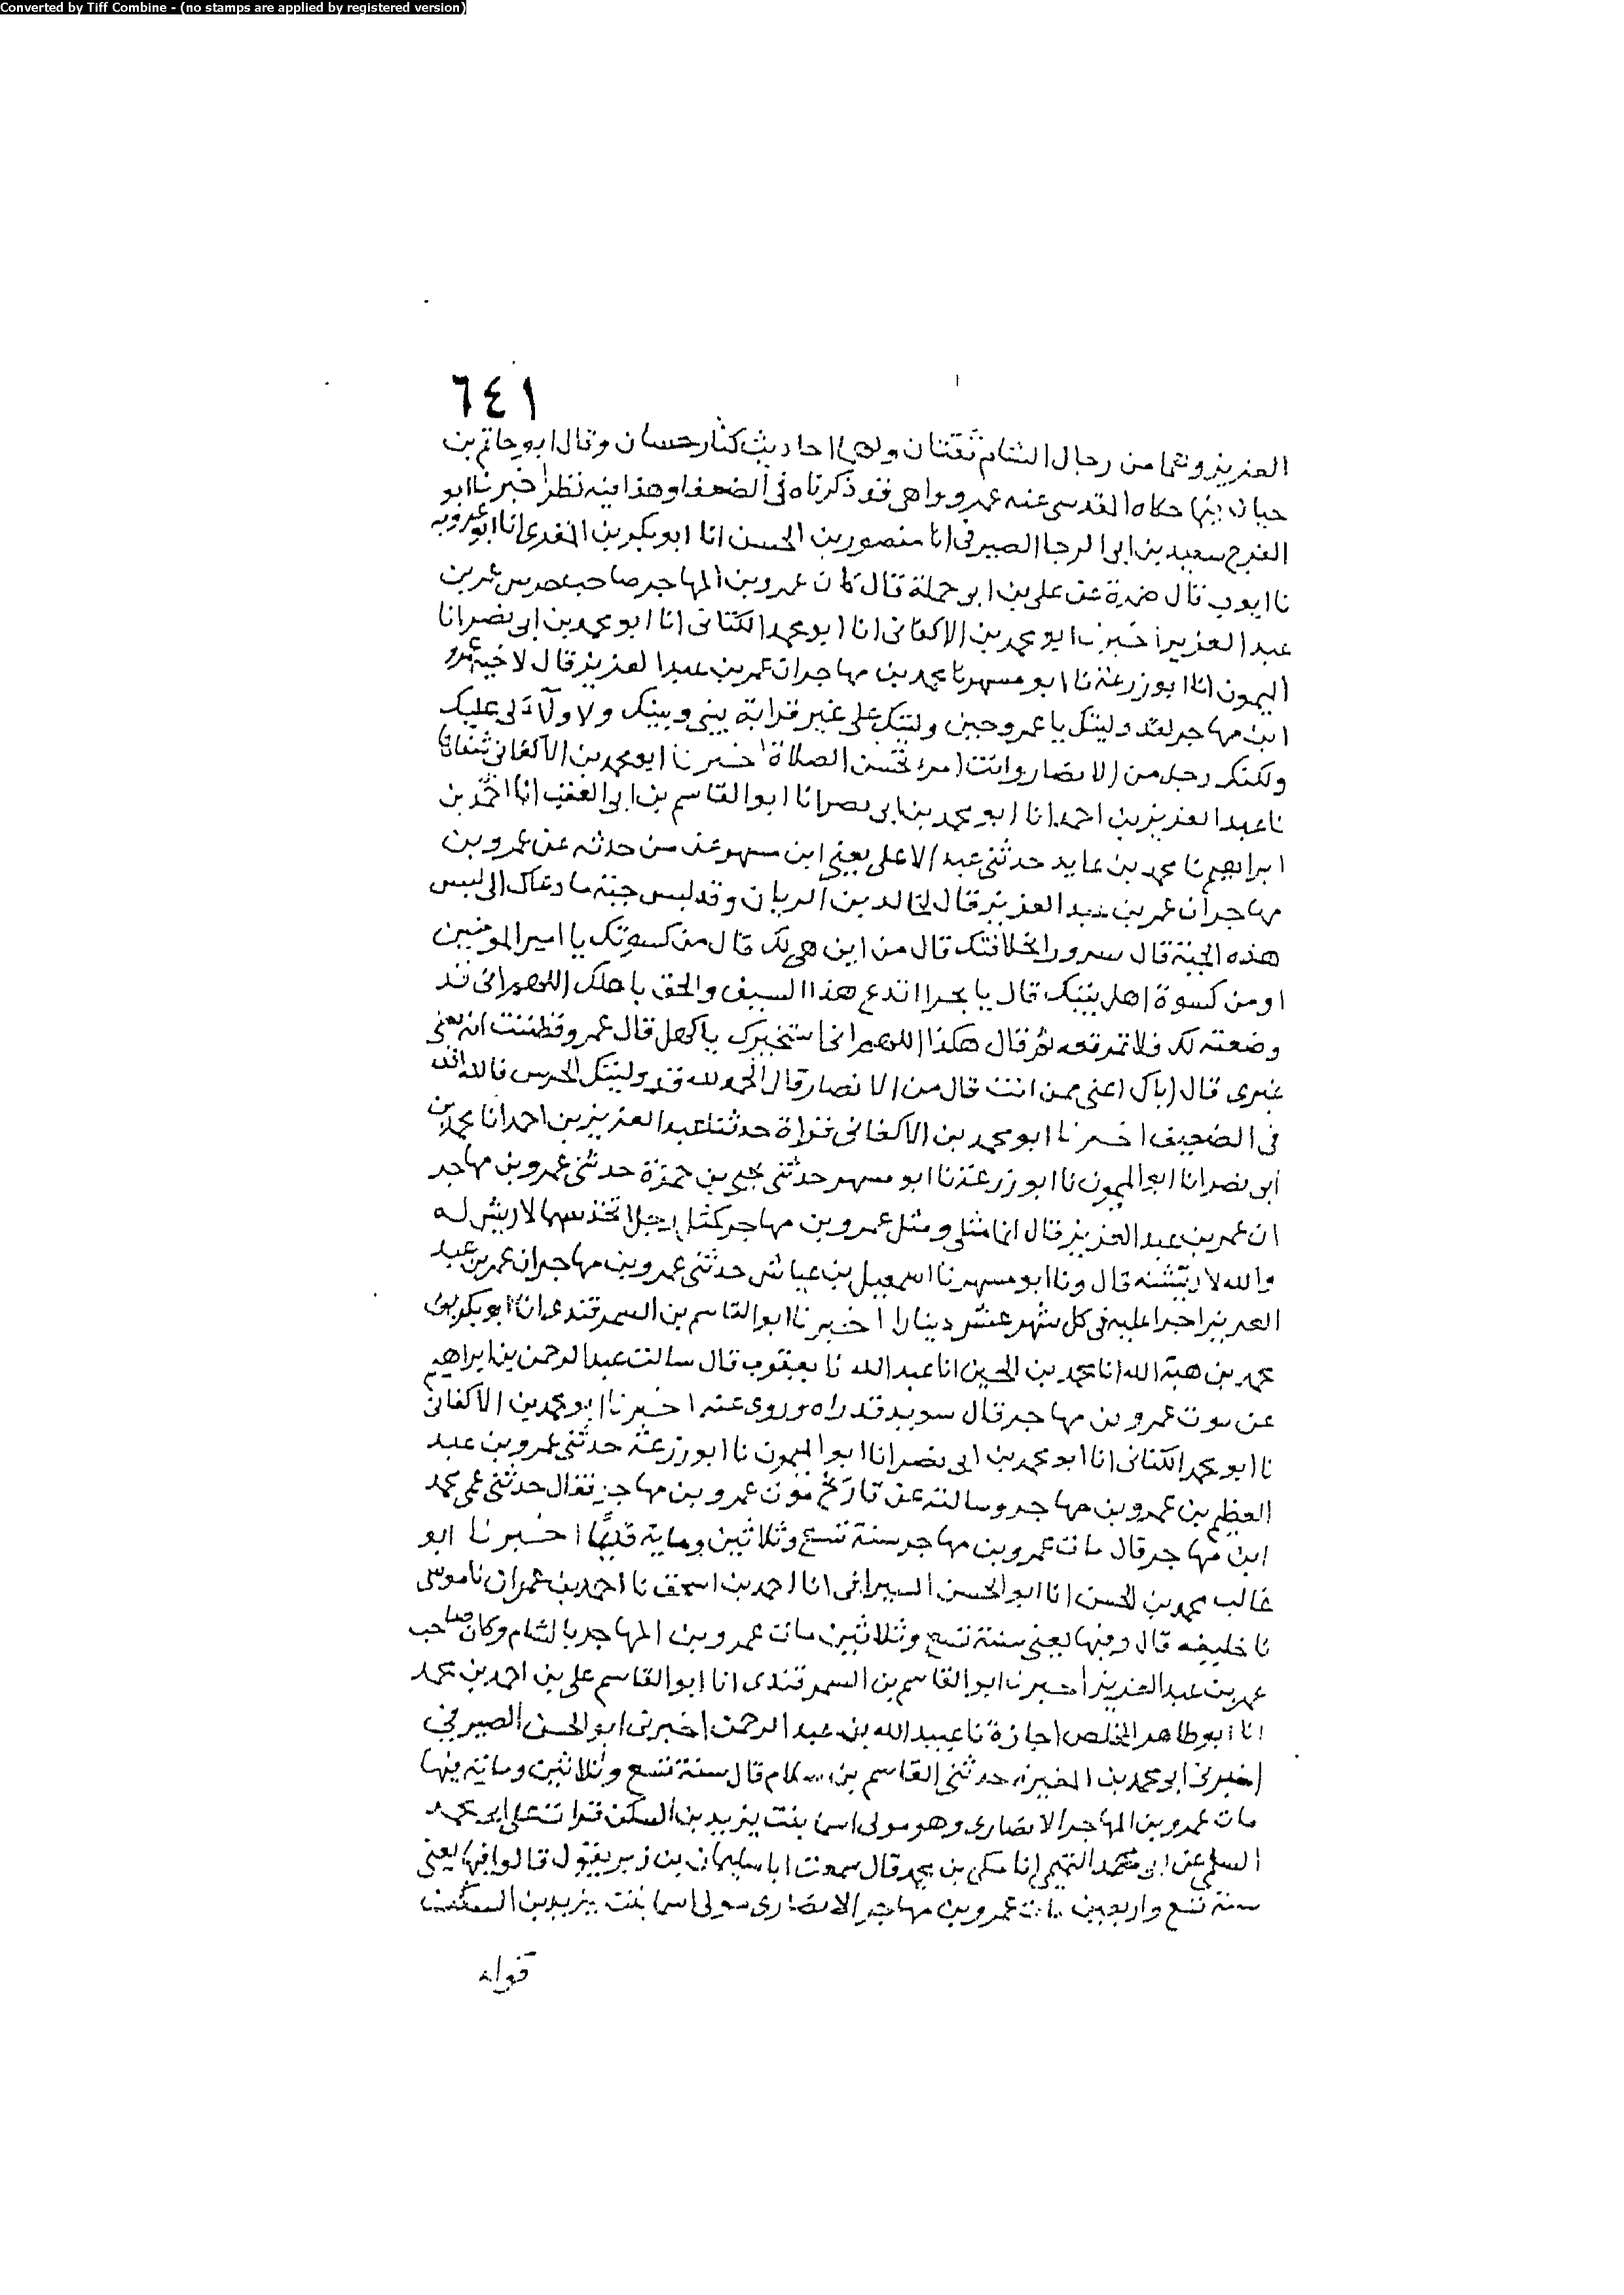 Converted by Tiff Combine - (no stamps are applied by registered version)
٦٤١
العزيز وهما من رجال الشام ثقتان ولهما احاديث كثار حسان وقال ابو حاتم بن
حبان فيما حكاه المقدسي عنه عمرو واهي قد ذكرناه في الضعفا وهذا فيه نظر اخبرنا ابو
الفرج سعيد بن ابي الرجا الصيرفي انا منصور بن الحسن انا ابو بكر بن المقري انا ابو عروبه
نا ايوب قال ضمرة عن علي بن ابو حملة قال كان عمرو بن المهاجر صاحب حرس عمر بن
عبد العزيز اخبرنا ابو محمد بن الاكفاني انا ابو محمد الكتاني انا ابو محمد بن ابي نصر انا
الميمون انا ابو زرعة نا ابو مسهر نا محمد بن مهاجر ان عمر بن عبد العزيز قال لاخيه عمرو
ابن مهاجر لقد وليتك يا عمرو حين وليتك على غير قرابة بيني وبينك ولا ولآء لي عليك
ولكنك رجل من الانصار وانت امرء تحسن الصلاة اخبرنا ابو محمد بن الاكفاني شفاها
نا عبد العزيز بن احمد انا ابو محمد بن ابي نصر انا ابو القاسم بن ابي العقب انا احمد بن
ابراهيم نا محمد بن عايد حدثني عبد الاعلى يعني ابن مسهر عن من حدثه عن عمرو بن
مهاجر ان عمر بن عبد العزيز قال لخالد بن الريان وقد لبس جبة ما دعاك الى لبس
هذه الجبة قال سرور الخلافتك قال من اين هي لك قال من كسوتك يا امير المومنين
او من كسوة اهل بيتك قال يا بحرا ندع هذا السيف والحق باهلك اللهم اني قد
وضعته لك فلا ترفعه ثم قال هكذا اللهم اني استخيرك يا كهل قال عمرو فظننت انه يعني
غيري قال اياك اعني ممن انت قال من الانصار قال الحمد لله قد وليتك الحرس فالله الله
في الضعيف اخبرنا ابو محمد بن الاكفاني قراة حدثنا عبد العزيز بن احمد انا محمد بن
ابي نصر انا ابو الميمون نا ابو زرعة نا ابو مسهر حدثني يحيى بن حمزة حدثني عمرو بن مهاجر
ان عمر بن عبد العزيز قال انما مثلي ومثل عمرو بن مهاجر كمثل رجل اتخذ سهما لا ريش له
والله لا ريشنه قال ونا ابو مسهر نا اسمعيل بن عياش حدثني عمرو بن مهاجر ان عمر بن عبد
العزيز اجرا عليه في كل شهر عشر دينارا اخبرنا ابو القاسم بن السمرقندي انا ابو بكر بن
محمد بن هبة الله انا محمد بن الحسين انا عبد الله نا يعقوب قال سالت عبد الرحمن بن ابراهيم
عن موت عمرو بن مهاجر قال سويد قد راه وروى عنه اخبرنا ابو محمد بن الاكفاني
نا ابو محمد الكتاني انا ابو محمد بن ابي نصر انا ابو الميمون نا ابو زرعة حدثني عمرو بن عبد
العظيم بن عمرو بن مهاجر وسالته عن تاريخ موت عمرو بن مهاجر فقال حدثني عمي محمد
ابن مهاجر قال مات عمرو بن مهاجر سنة تسع وثلاثين وماية اخبرنا ابو
غالب محمد بن الحسن انا ابو الحسن السيرافي انا احمد بن اسحق نا احمد بن عمران نا موسى
نا خليفه قال وفيها يعني سنة تسع وثلاثين مات عمرو بن المهاجر بالشام وكان صاحب
عمر بن عبد العزيز اخبرنا ابو القاسم بن السمرقندي انا ابو القاسم علي بن احمد بن محمد
انا ابو طاهر المخلص اجازة نا عبيد الله بن عبد الرحمن اخبرني ابو الحسن الصيرفي
اخبرني ابو محمد بن المغيرة حدثني القاسم بن سلام قال سنة تسع وثلاثين وماية فيها
مات عمرو بن المهاجر الانصاري وهو مولى اسما بنت يزيد بن السكن قرات على ابي محمد
السلمي عن ابي محمد التميمي انا مكي بن محمد قال سمعت ابا سليمان بن زبر يقول قالوا فيها يعني
سنة تسع واربعين مات عمرو بن مهاجر الانصاري مولى اسما بنت يزيد بن السكن